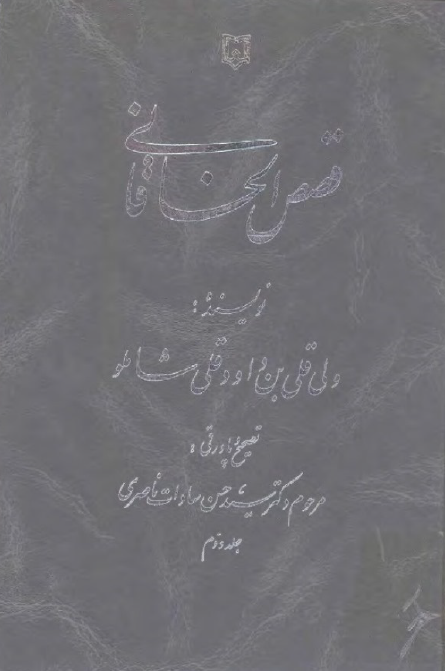 قصص الخاقانی
نویسنده :
ولی قلی بن داود قلی شاملو
تصحیح و پاورقی :
مرحوم دکتر سید حسن سادات ناصری
جلد دوم